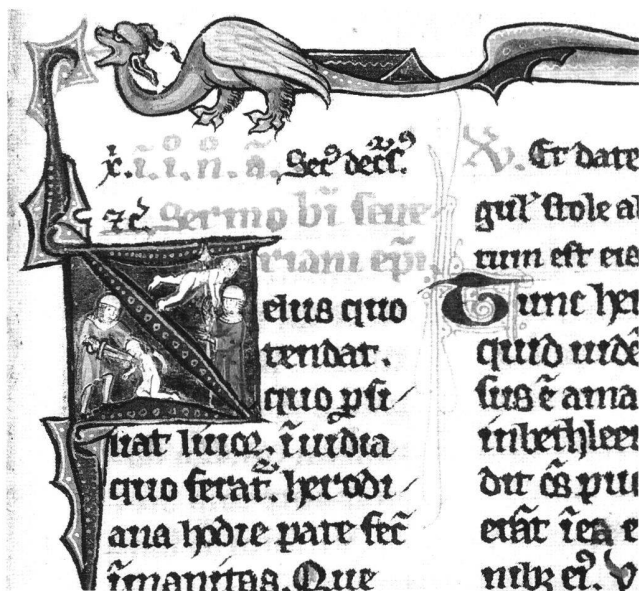 ⁊c̄. Sermo bī seue-
riani epī.
Zelus quo
tendat.
quo ꝓsi/
liat liuor. īuidia
quo ferat. herodi/
ana hodie pate fec̄
īmanitas. Que
Et date
gul' stole al
tum est eis
Tunc her
quid uide
sus ē ama
inbethleem
dit
erāt
nibꝫ ei. V